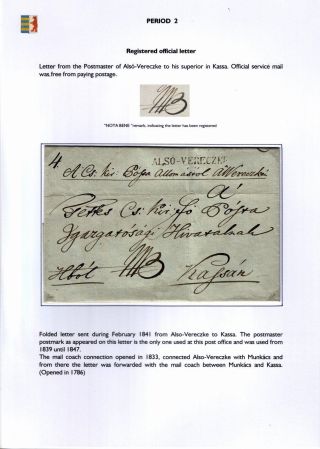 PERIOD 2
Registered official letter
Letter from the Postmaster of Alsó-Vereczke to his superior in Kassa. Official service mail
was free from paying postage.
NB
"NOTA BENE "remark, indicating the letter has been registered
4.
ALSÓ-VERECZKE
A Cs. Kir. Posta Állomástól AVereczkei
á
Tettes Cs: Kir Fő Posta
Igazgatósági Hivatalnak
Hból
NB
Kassán
Folded letter sent during February 1841 from Also-Vereczke to Kassa. The postmaster
postmark as appeared on this letter is the only one used at this post office and was used from
1839 until 1847.
The mail coach connection opened in 1833, connected Also-Vereczke with Munkács and
from there the letter was forwarded with the mail coach between Munkács and Kassa.
(Opened in 1786)